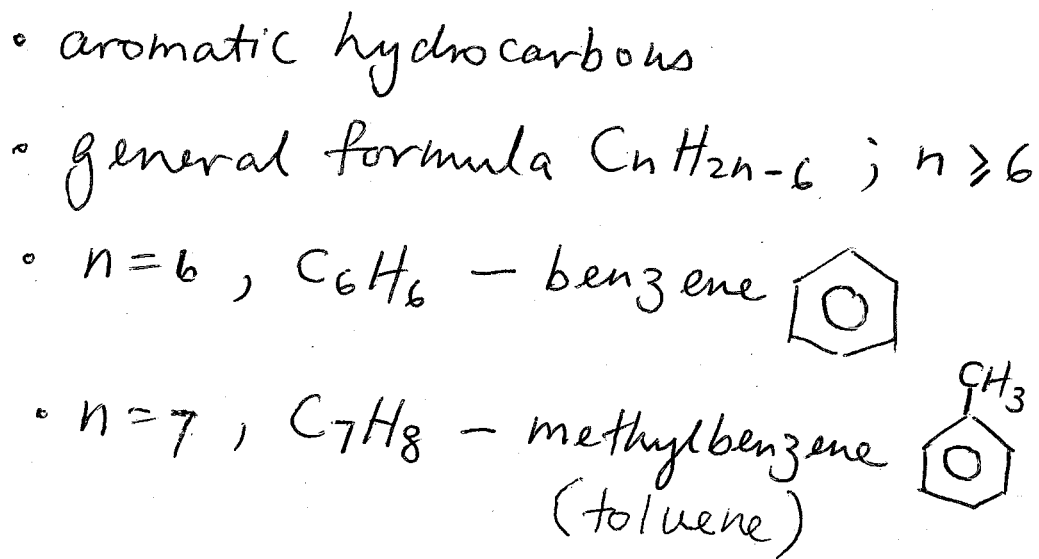 • aromatic hydrocarbons
• general formula CnH2n-6 ; n ⩾ 6
• n = 6 , C6H6 – benzene
CH3
• n = 7 , C7H8 – methylbenzene
(toluene)